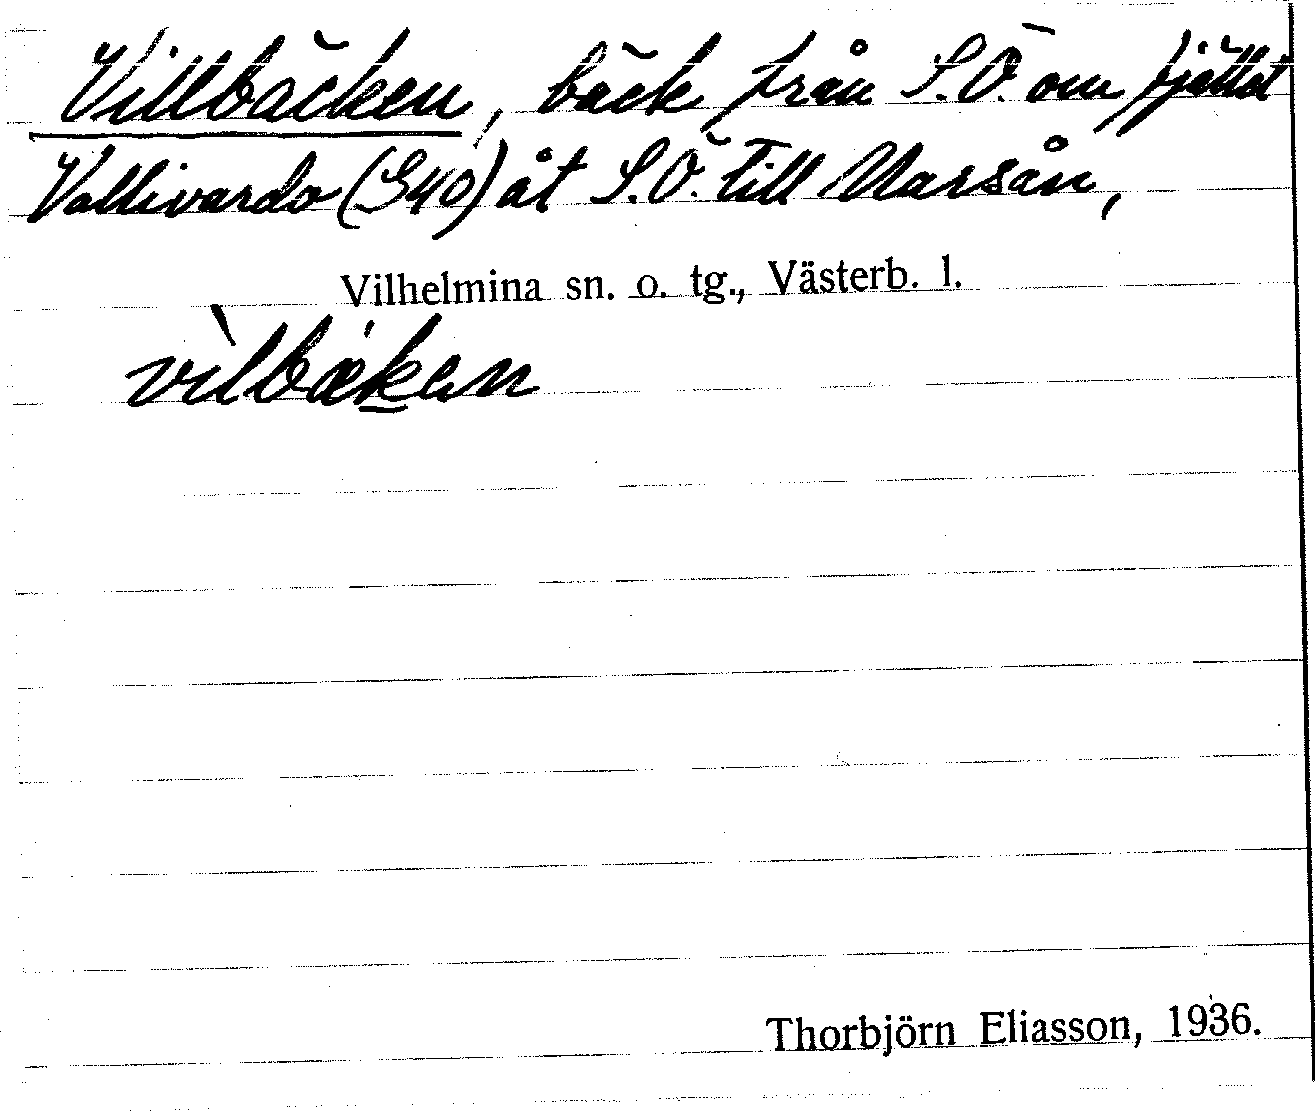 Villbäcken, bäck från S.Ö. om fjället
Vallivardo (940) åt S.Ö. till Marsån,
Vilhelmina sn. o. tg., Västerb. l.
vìlbækan
Thorbjörn Eliasson, 1936.